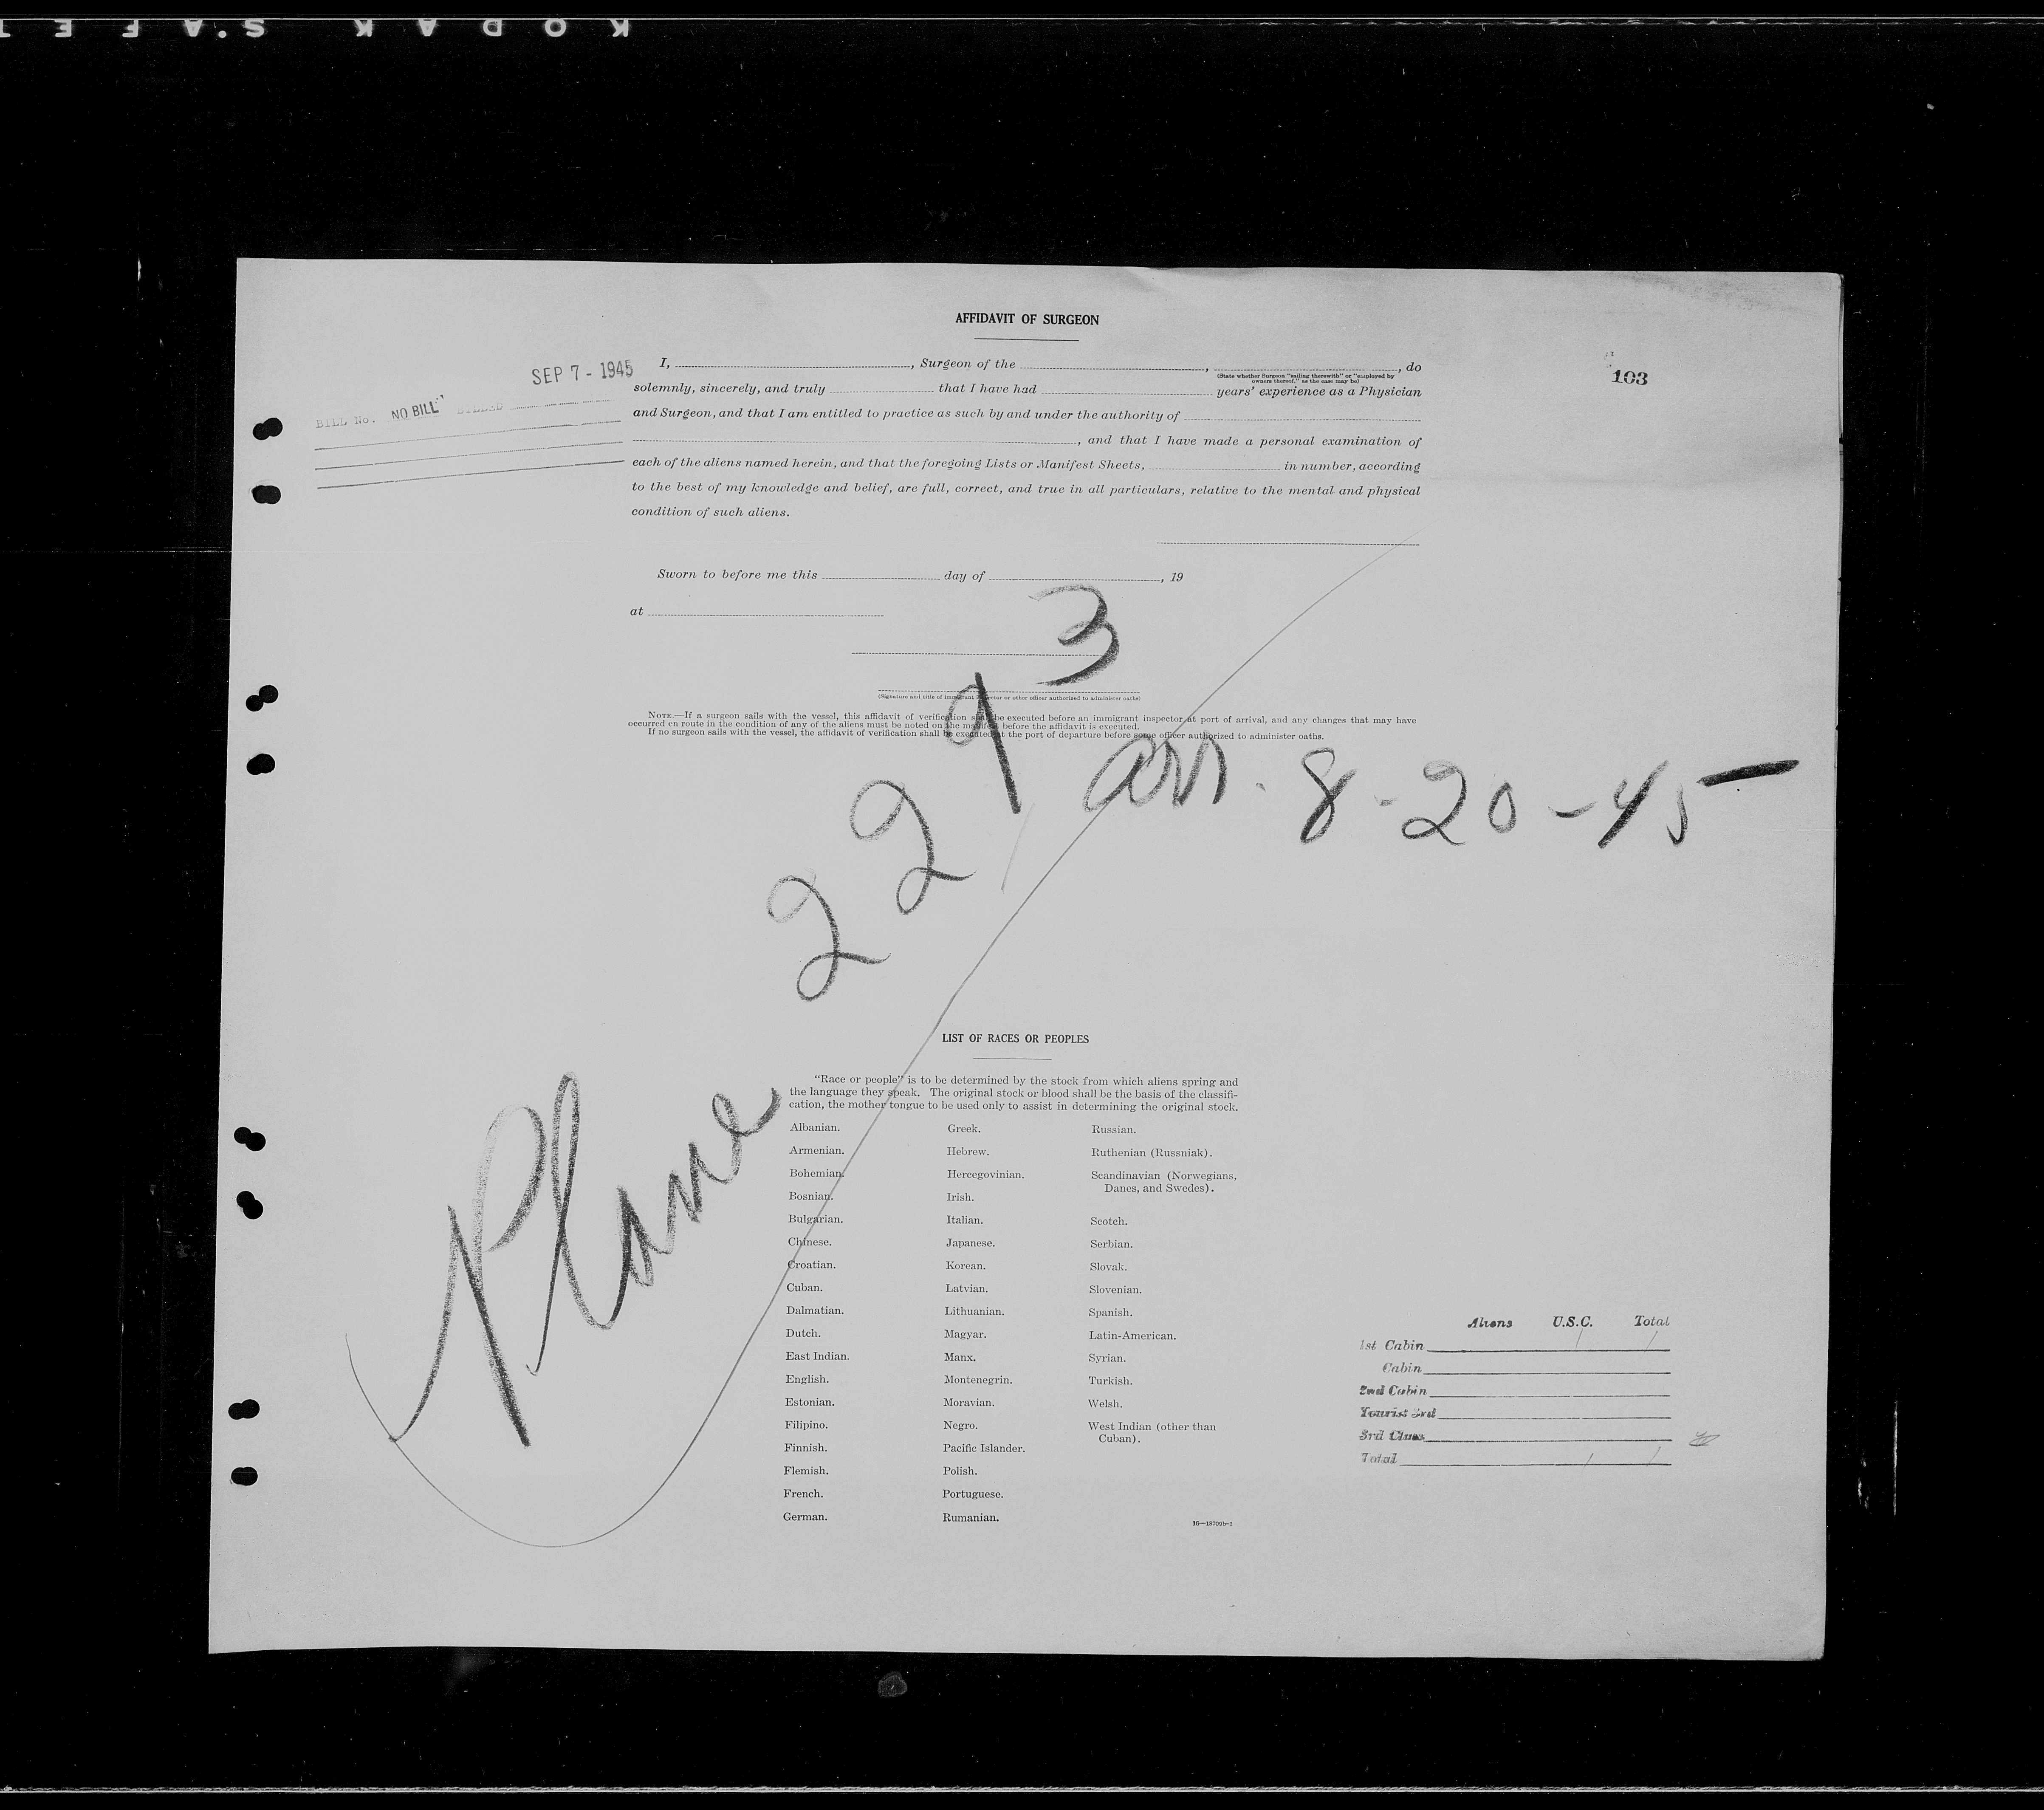 KODAK SAFE
AFFIDAVIT OF SURGEON
103
SEP 7 - 1945
BILL No. NO BILL
I, , Surgeon of the , , do
(State whether Surgeon "sailing therewith" or "employed by
owners thereof," as the case may be)
solemnly, sincerely, and truly that I have had years' experience as a Physician
and Surgeon, and that I am entitled to practice as such by and under the authority of
, and that I have made a personal examination of
each of the aliens named herein, and that the foregoing Lists or Manifest Sheets, in number, according
to the best of my knowledge and belief, are full, correct, and true in all particulars, relative to the mental and physical
condition of such aliens.
Sworn to before me this day of , 19
at
(Signature and title of immigrant inspector or other officer authorized to administer oaths)
NOTE.—If a surgeon sails with the vessel, this affidavit of verification shall be executed before an immigrant inspector at port of arrival, and any changes that may have
occurred en route in the condition of any of the aliens must be noted on the manifest before the affidavit is executed.
If no surgeon sails with the vessel, the affidavit of verification shall be executed at the port of departure before some officer authorized to administer oaths.
Plane 2293
arr. 8-20-45
LIST OF RACES OR PEOPLES
"Race or people" is to be determined by the stock from which aliens spring and
the language they speak. The original stock or blood shall be the basis of the classifi-
cation, the mother tongue to be used only to assist in determining the original stock.
Albanian.
Armenian.
Bohemian.
Bosnian.
Bulgarian.
Chinese.
Croatian.
Cuban.
Dalmatian.
Dutch.
East Indian.
English.
Estonian.
Filipino.
Finnish.
Flemish.
French.
German.
Greek.
Hebrew.
Hercegovinian.
Irish.
Italian.
Japanese.
Korean.
Latvian.
Lithuanian.
Magyar.
Manx.
Montenegrin.
Moravian.
Negro.
Pacific Islander.
Polish.
Portuguese.
Rumanian.
Russian.
Ruthenian (Russniak).
Scandinavian (Norwegians,
Danes, and Swedes).
Scotch.
Serbian.
Slovak.
Slovenian.
Spanish.
Latin-American.
Syrian.
Turkish.
Welsh.
West Indian (other than
Cuban).
16—18709b-1
Aliens U.S.C. Total
1st Cabin 1 1
Cabin
2nd Cabin
Tourist 3rd
3rd Class
Total 1 1